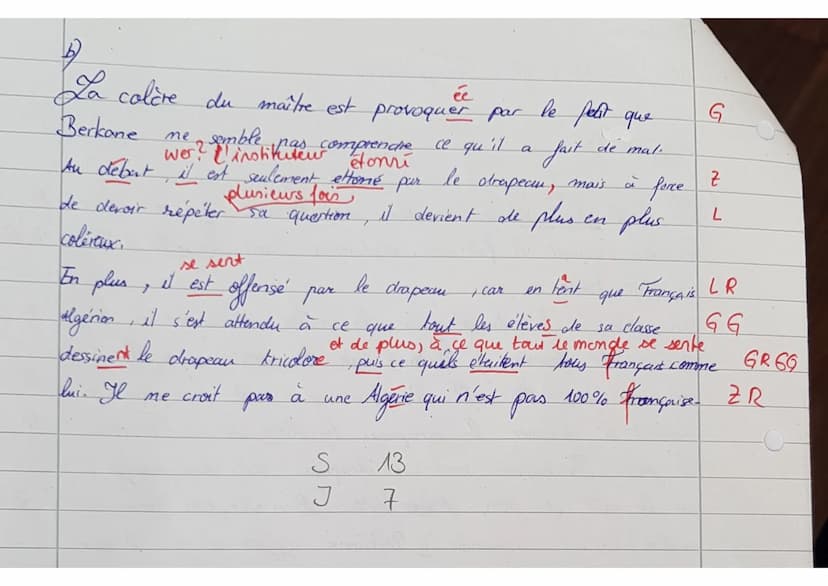 b)
ée
La colère du maître est provoquer par le fait que G
Berkane ne semble pas comprendre ce qu'il a fait de mal.
wer? l'instituteur étonné
Au début, il est seulement ettoné par le drapeau, mais à force Z
plusieurs fois
de devoir répéter sa question, il devient de plus en plus L
coléreux.
se sent
En plus, il est offensé par le drapeau, car en tent que Français L R
a
Algérien, il s'est attendu à ce que tout les élèves de sa classe G G
et de plus, à ce que tout le monde se sente
dessinent le drapeau tricolore, puis ce qu'ils étaitent tous français comme G R G G
lui. Il ne croit pas à une Algérie qui n'est pas 100% française. Z R
S 13
J 7